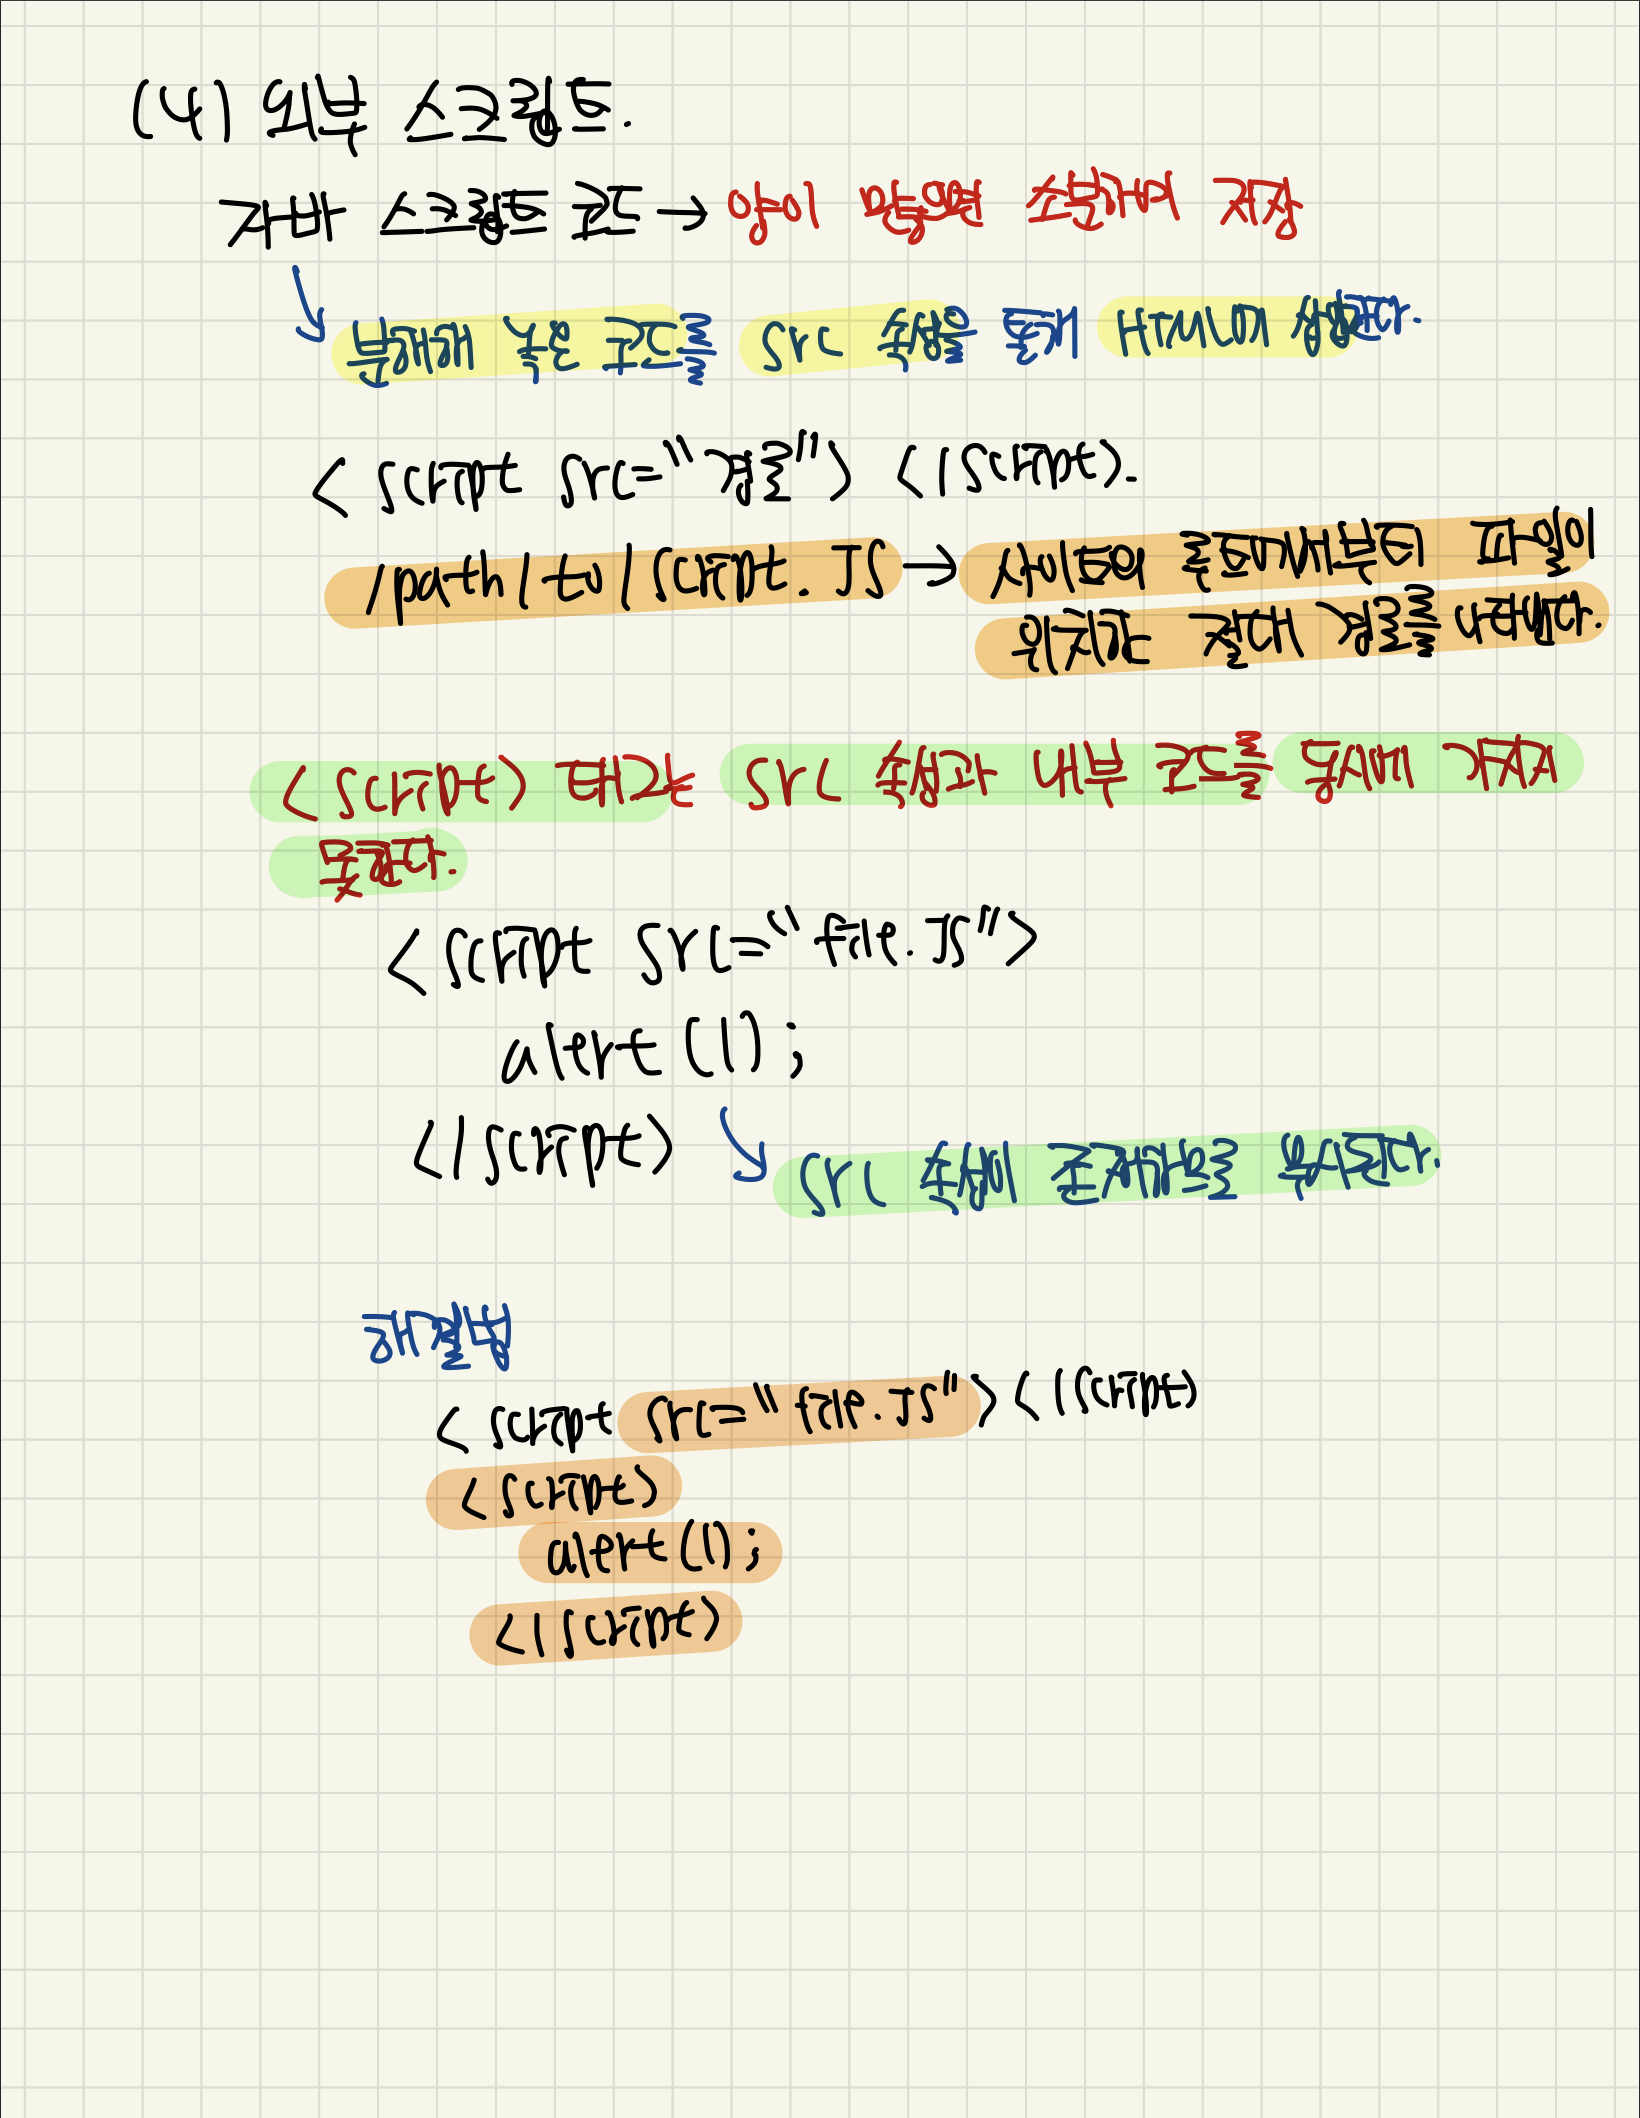 (4) 외부 스크립트.
자바 스크립트 코드 → 양이 많으면 소분하여 저장
분해해 놓은 코드를 src 속성을 통해 HTML에 삽입한다.
< script src="경로"> </script>.
/path/to/script.JS → 사이트의 루트에서부터 파일이
위치하는 절대 경로를 나타낸다.
<script> 태그는 src 속성과 내부 코드를 동시에 가지지
못한다.
<script src="file.JS">
alert(1);
</script>
src 속성이 존재하므로 무시된다.
해결법
<script src="file.JS"></script>
<script>
alert(1);
</script>